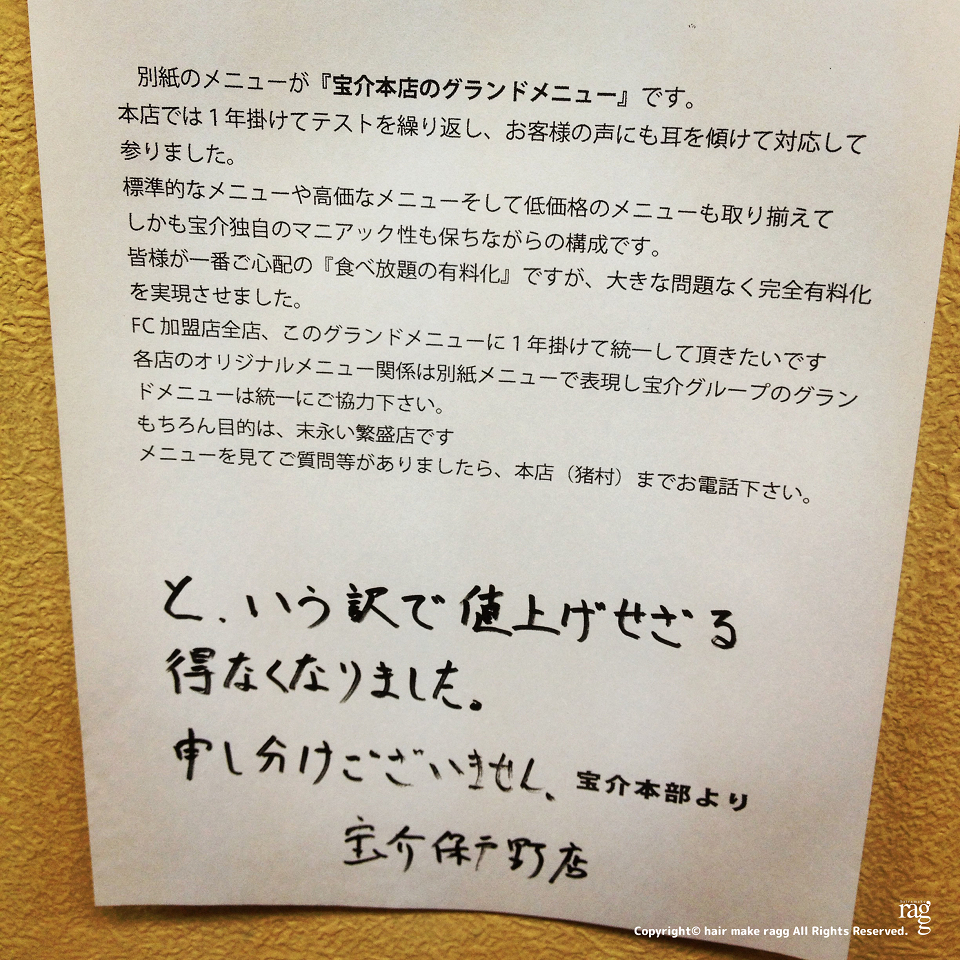 別紙のメニューが『宝介本店のグランドメニュー』です。
本店では1年掛けてテストを繰り返し、お客様の声にも耳を傾けて対応して
参りました。
標準的なメニューや高価なメニューそして低価格のメニューも取り揃えて
しかも宝介独自のマニアック性も保ちながらの構成です。
皆様が一番ご心配の『食べ放題の有料化』ですが、大きな問題なく完全有料化
を実現させました。
FC加盟店全店、このグランドメニューに1年掛けて統一して頂きたいです
各店のオリジナルメニュー関係は別紙メニューで表現し宝介グループのグラン
ドメニューは統一にご協力下さい。
もちろん目的は、末永い繁盛店です
メニューを見てご質問等がありましたら、本店（猪村）までお電話下さい。
と、いう訳で値上げせざる
得なくなりました。
申し分けございません、
宝介本部より
宝介保戸野店
hairmake
ragg
Copyright© hair make ragg All Rights Reserved.